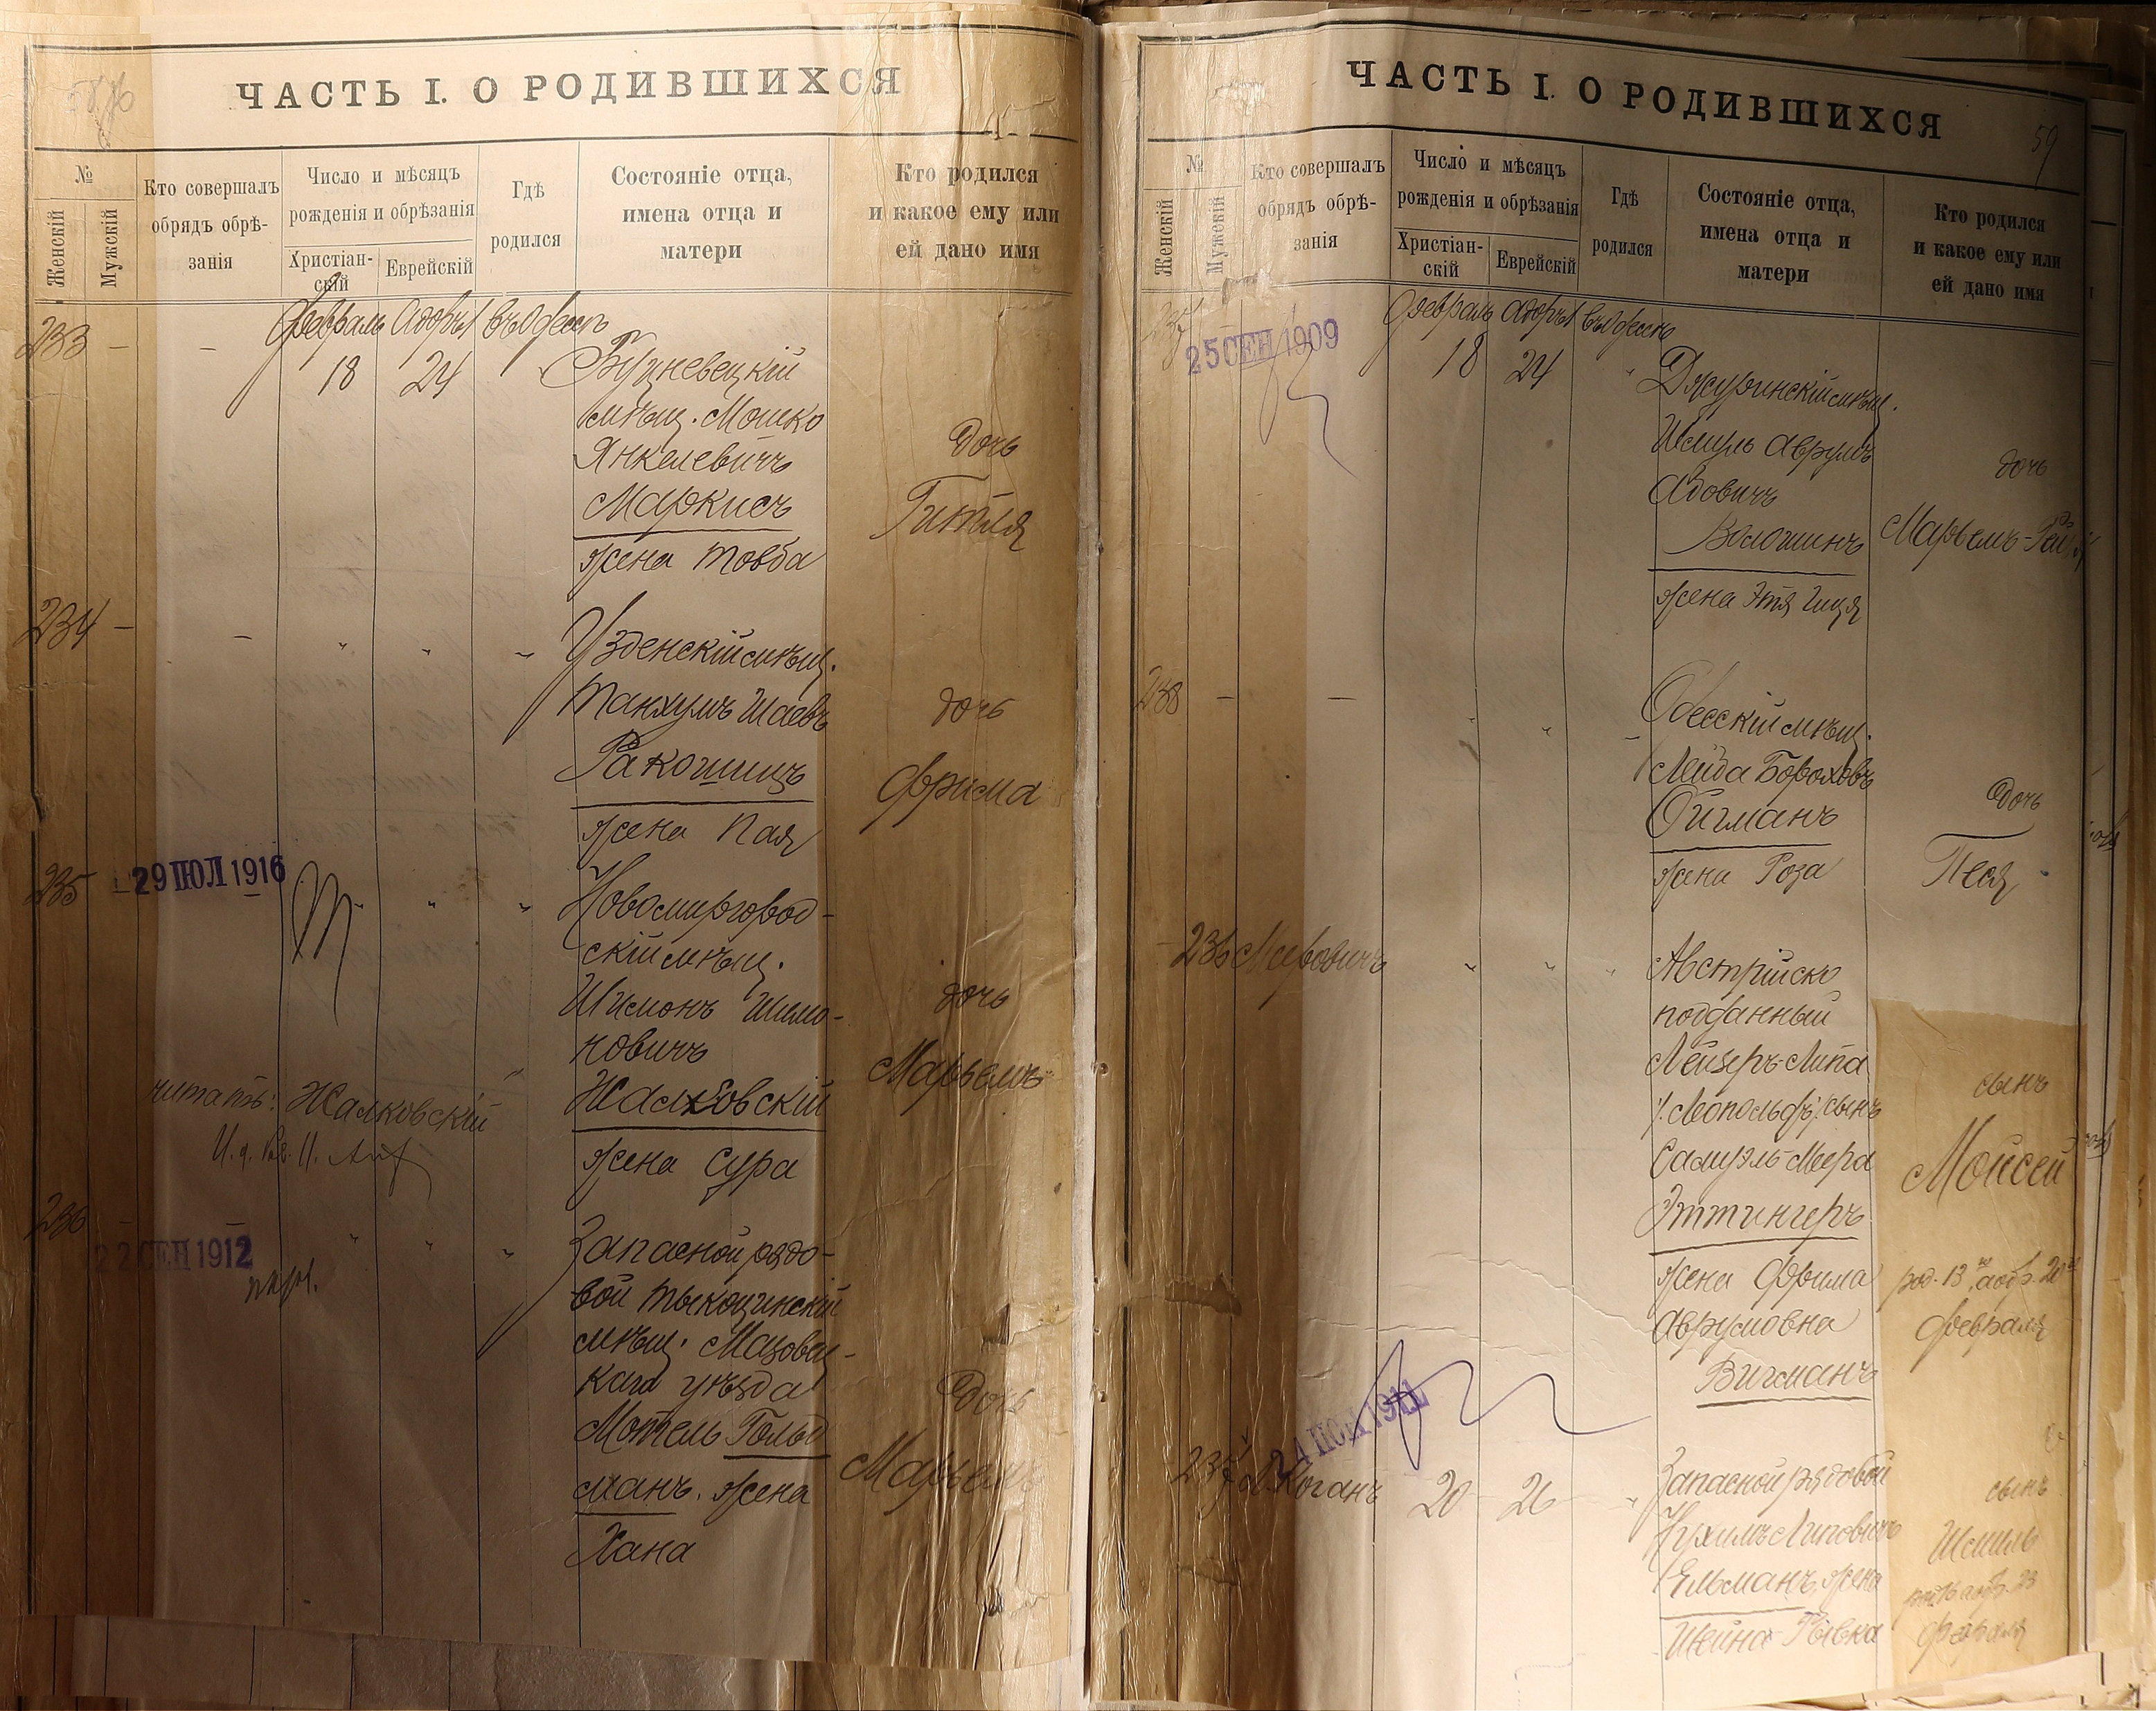 ЧАСТЬ I. О РОДИВШИХСЯ
№
Женскій
Мужскій
Кто совершалъ
обрядъ обрѣ-
занія
Число и мѣсяцъ
рожденія и обрѣзанія
Христіан-
скій
Еврейскій
Гдѣ
родился
Состояніе отца,
имена отца и
матери
Кто родился
и какое ему или
ей дано имя
233 - -
Февраль Адоръ I въ Одессѣ
18 24
мѣщ. Мошко
Янкелевичъ
Маркисъ
жена Товба
дочь
Гитля
234 - - " " "
Узденскій мѣщ.
Танхумъ Шаевъ
Ракошицъ
жена Пая
дочь
Фрима
235 -
29 ІЮЛ 1916
" " "
Новомиргород-
скій мѣщ.
Шимонъ Шимо-
новичъ
Жалковскій
жена Сура
дочь
Марьемъ
читать: Жалковскій
236 - -
22 СЕН 1912
" " "
Запасной рядо-
вой Тыкоцинскій
мѣщ. Мазовец-
каго уѣзда
Мотель Гольд
манъ. жена
Хана
дочь
Марьемъ
ЧАСТЬ I. О РОДИВШИХСЯ
59
№
Женскій
Мужескій
Кто совершалъ
обрядъ обрѣ-
занія
Число и мѣсяцъ
рожденія и обрѣзанія
Христіан-
скій
Еврейскій
Гдѣ
родился
Состояніе отца,
имена отца и
матери
Кто родился
и какое ему или
ей дано имя
237
25 СЕН 1909
Февраль Адоръ I въ Одессѣ
18 24 "
Джуринскій мѣщ.
Шмуль Аврумъ
Абовичъ
Волошинъ
жена Этя Гиця
дочь
238 - - " "
Одесскій мѣщ.
Лейба Бороховъ
Ойгманъ
жена Роза
дочь
Песя
- 236 Меровичъ " " "
Австрійско
подданный
Лейзеръ-Липа
/:Леопольдъ:/ сынъ
Самуэль-Меера
Эттингеръ
жена Фрима
Аврумовна
Вигманъ
сынъ
Мойсей
род. 13го, а обр. 20го
февраля
24 1911
237 Л. Коганъ 20 26 "
Запасной рядовой
Нухимъ Липовичъ
Ельманъ, жена
Шейна-Рывка
сынъ
Шмиль
февраля